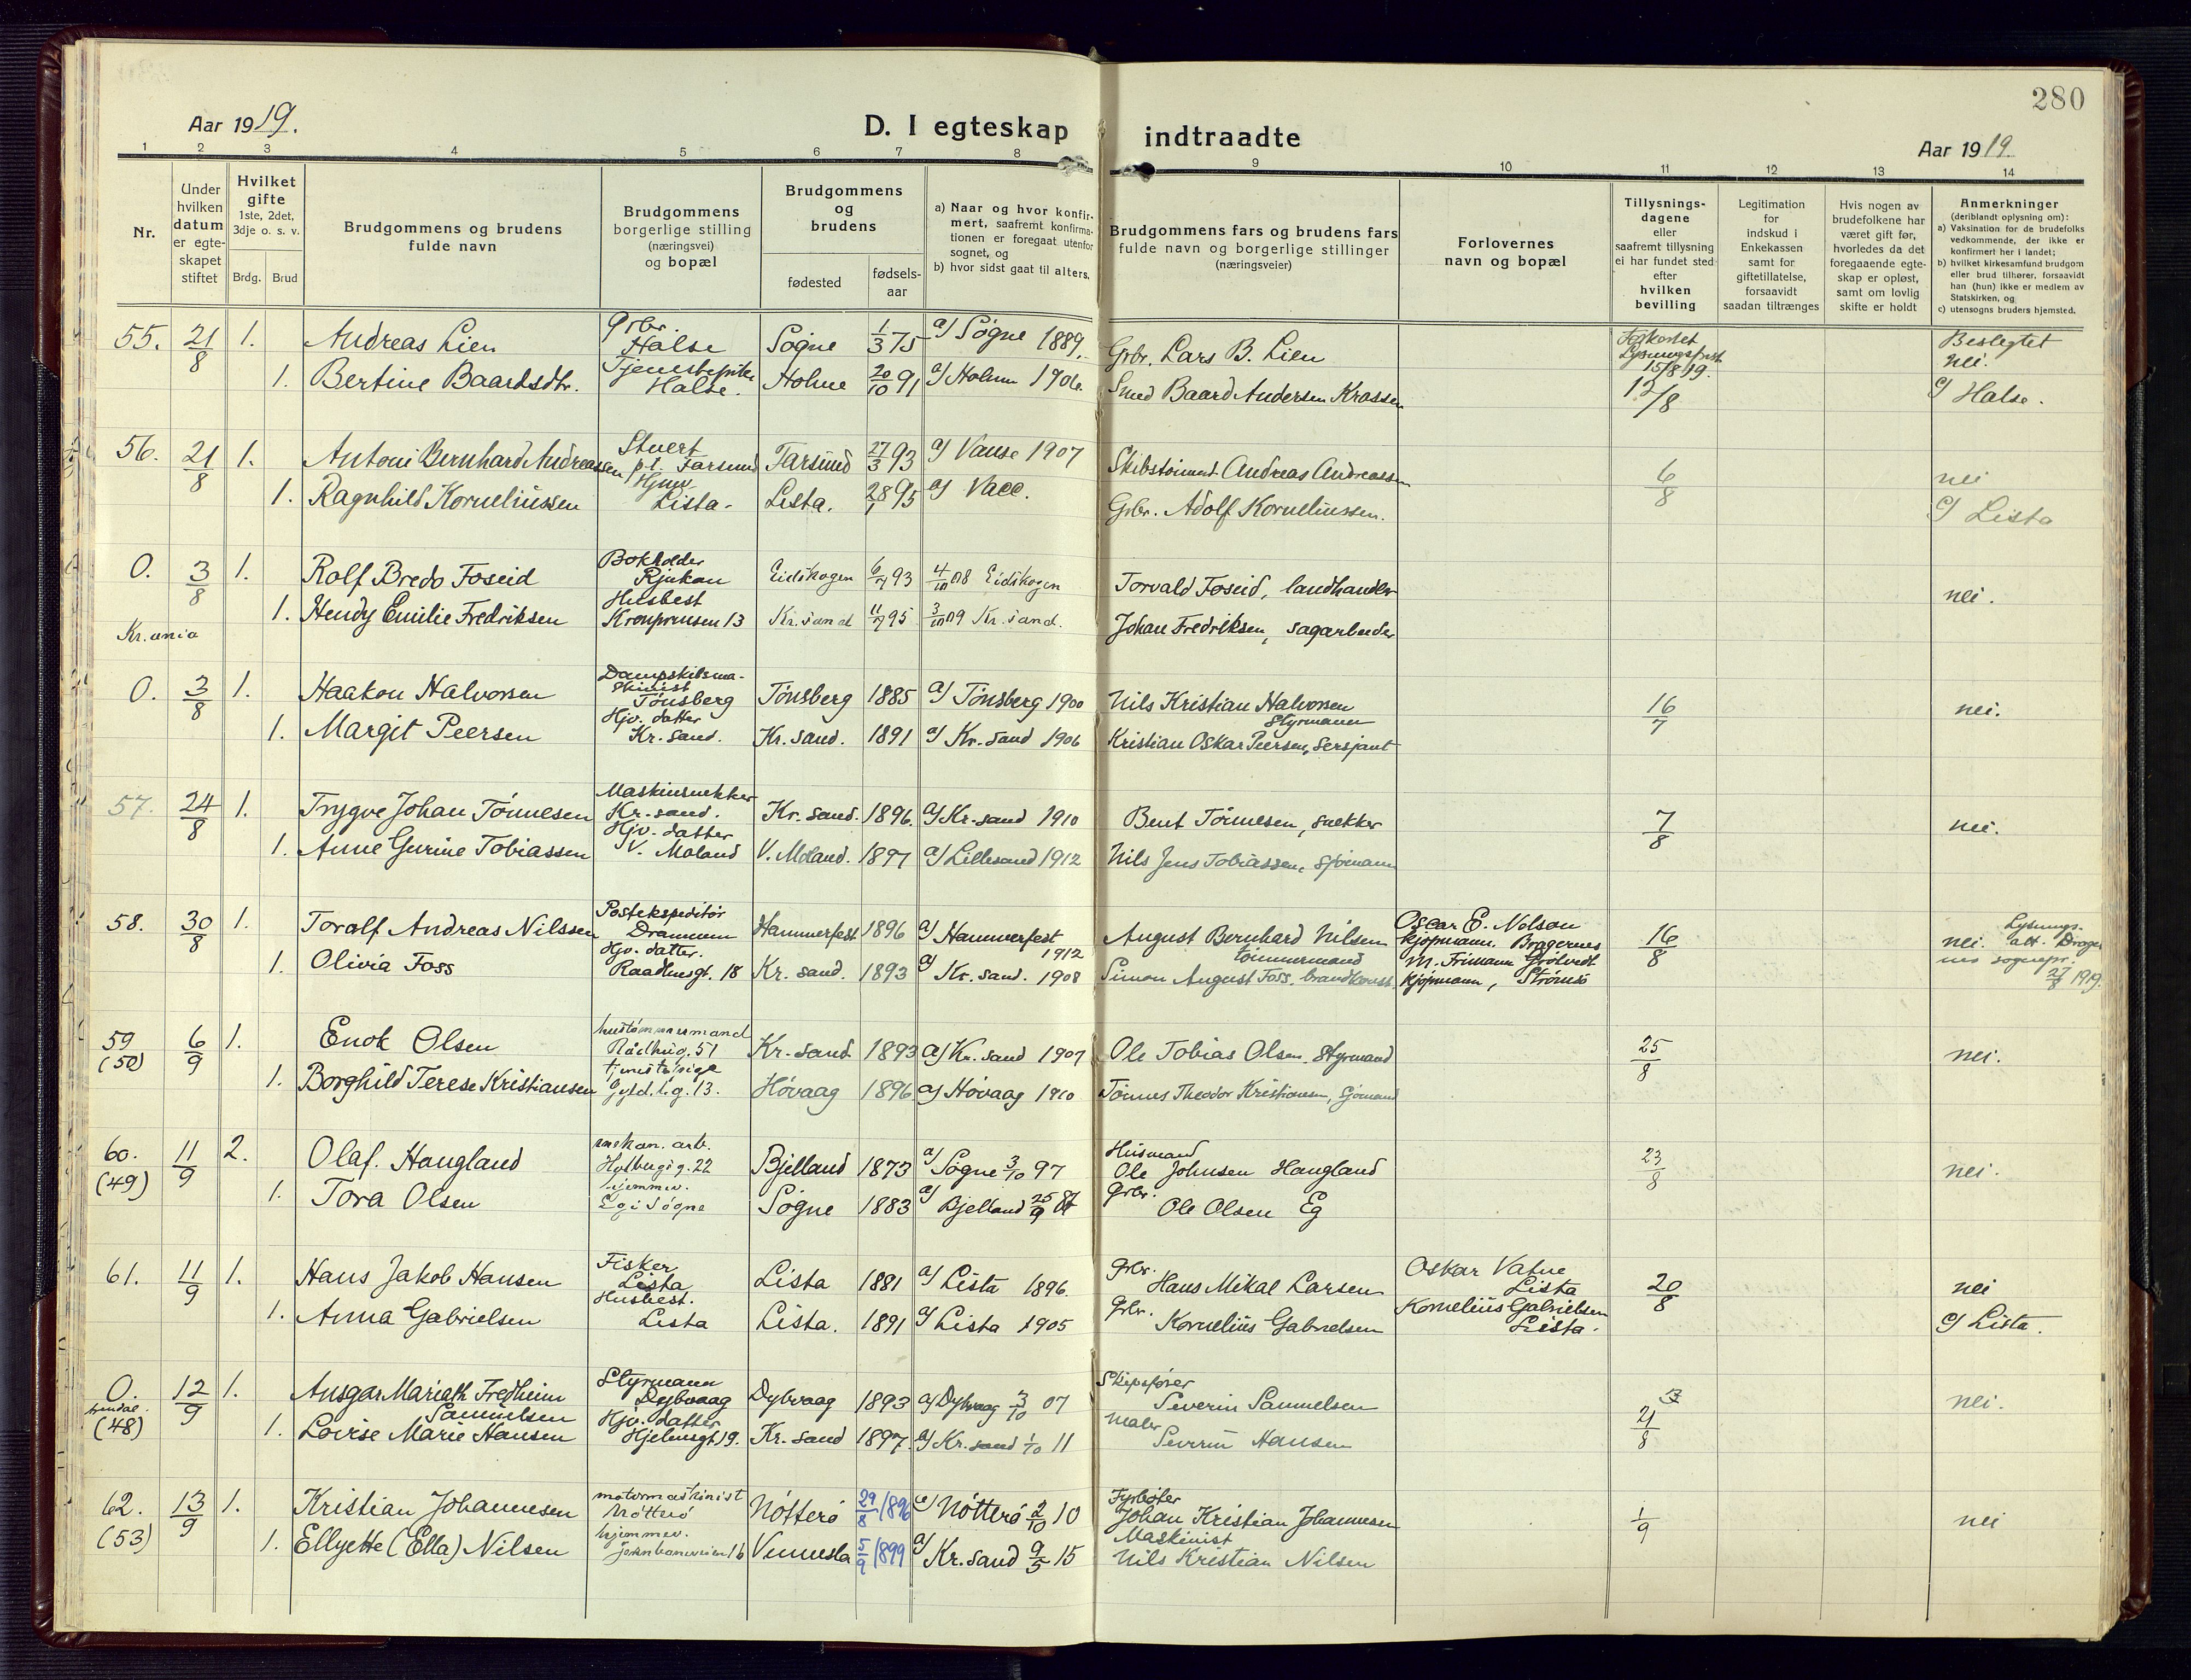 280
Aar 1919.
D. I egteskap indtraadte
Aar 1919
1 2 3 4 5 6 7 8 9 10 11 12 13 14
Nr.
Under hvilken datum er egte-skapet stiftet
Hvilket gifte 1ste, 2det, 3dje o. s. v.
Brdg. Brud
Brudgommens og brudens fulde navn
Brudgommens borgerlige stilling (næringsvei) og bopæl
Brudgommens og brudens
fødested
fødsels-aar
a) Naar og hvor konfir-mert, saafremt konfirma-tionen er foregaat utenfor sognet, og
b) hvor sidst gaat til alters.
Brudgommens fars og brudens fars fulde navn og borgerlige stillinger (næringsveier)
Forlovernes navn og bopæl
Tillysnings-dagene eller saafremt tillysning ei har fundet sted efter hvilken bevilling
Legitimation for indskud i Enkekassen samt for giftetillatelse, forsaavidt saadan tiltrænges
Hvis nogen av brudefolkene har været gift før, hvorledes da det foregaaende egte-skap er opløst, samt om lovlig skifte er holdt
Anmerkninger (deriblandt oplysning om):
a) Vaksination for de brudefolks vedkommende, der ikke er konfirmert her i landet;
b) hvilket kirkesamfund brudgom eller brud tilhører, forsaavidt han (hun) ikke er medlem av Statskirken, og
c) utensogns bruders hjemsted.
55. 21/8 1. Andreas Lien Grbr. Halse Søgne 1/3 75 a) Søgne 1889. Grbr. Lars B. Lien Lysningsfrist 15/8 19. Beslegtet nei.
1. Bertine Baardsdtr. Halse. Holme 20/10 91 a) Holum 1906. Smed Baard Andersen Krossen 12/8 c) Halse.
56. 21/8 1. Antoni Bernhard Andreassen Stuert p.t. Farsund Farsund 27/3 93 a) Vanse 1907 Andreas Andreassen 6/8 nei
1. Ragnhild Korneliussen Hjmv. Lista. Lista. 28/1 95 a) Vacc. Grbr. Adolf Korneliussen. c) Lista
0. 3/8 1. Rolf Bredo Foseid Bokholder Rjukan Eidskogen 6/7 93 4/10 08 Eidskogen Torvald Foseid, landhandler nei.
Kr.ania 1. Hendy Emilie Fredriksen Husbest Kronprinsen 13 Kr.sand 11/7 95 3/10 09 Kr.sand. Johan Fredriksen, sagarbeider
0. 3/8 1. Haakon Halvorsen Dampskibsma-skinist Tønsberg Tønsberg 1885 a) Tønsberg 1900 Nils Kristian Halvorsen Styrmann 16/7 nei.
1. Margit Peersen Hjv. datter Kr.sand. Kr.sand. 1891 a) Kr.sand 1906 Kristian Oskar Peersen, sersjant
57. 24/8 1. Trygve Johan Tønnesen Maskinsnekker Kr.sand. Kr.sand. 1896. a) Kr.sand 1910 Bent Tønnesen, snekker 7/8 nei.
1. Anne Gurine Tobiassen Hjv. datter V. Moland V. Moland. 1897 a) Lillesand 1912 Nils Jens Tobiassen, sjømann
58. 30/8 1. Toralf Andreas Nilssen Postekspeditør Drammen Hammerfest 1896 a) Hammerfest 1912 August Bernhard Nilsen tømmermand Oscar E. Nelson kjøpmann. Bragernes 16/8 nei. Lysnings. att. Brager nes sognepr. 27/8 1919.
1. Olivia Foss Hjv. datter. Raadhusgt. 18 Kr. sand. 1893 a) Kr. sand. 1908 Simon August Foss, brandkonst. M. Frimann kjøpmann, Strømsø
59 (50) 6/9 1. Enok Olsen hustømmermand Rådhusg. 51 Kr.sand 1893 a) Kr.sand 1907 Ole Tobias Olsen, styrmand 25/8 nei.
1. Borghild Terese Kristiansen tjenestepige Gyld.l.g. 13. Høvaag 1896 a) Høvaag 1910 Tønnes Theodor Kristiansen, sjømand
60. (49) 11/9 2. Olaf. Haugland mekan. arb. Holbergsg. 22 Bjelland 1873 a) Søgne 3/10 97 Husmand Ole Johnsen Haugland 23/8 nei.
1. Tora Olsen hjemmev. Eg i Søgne Søgne 1883 a) Bjelland 25/9 87 Grbr. Ole Olsen Eg
61. 11/9 1. Hans Jakob Hansen Fisker Lista Lista 1881 a) Lista 1896. Grbr. Hans Mikal Larsen Oskar Vatne Lista 20/8 nei
1. Anna Gabrielsen Husbest. Lista Lista. 1891 a) Lista 1905 Grbr. Kornelius Gabrielsen Kornelius Gabrielsen Lista. c) Lista.
0. Arendal. (48) 12/9 1. Ansgar Mariath Fredheim Samuelsen Styrmann Dybvaag Dybvaag 1893 a) Dybvaag 3/10 07 Skipsfører Severin Samuelsen 21/8 nei.
1. Lovise Marie Hansen Hjv. datter Hjelmsgt 19. Kr. sand 1897. a) Kr.sand 1/10 11 Maler Severin Hansen
62. (53) 13/9 1. Kristian Johannesen motormaskinist Nøtterø Nøtterø 29/8 1896 a) Nøtterø 2/10 10 Fyrbøter Johan Kristian Johannesen 1/9 nei
1. Ellyette (Ella) Nilsen hjemmev. Jernbaneveien 16 Vennesla 5/9 1899 a) Kr.sand 9/5 15 Maskinist Nils Kristian Nilsen